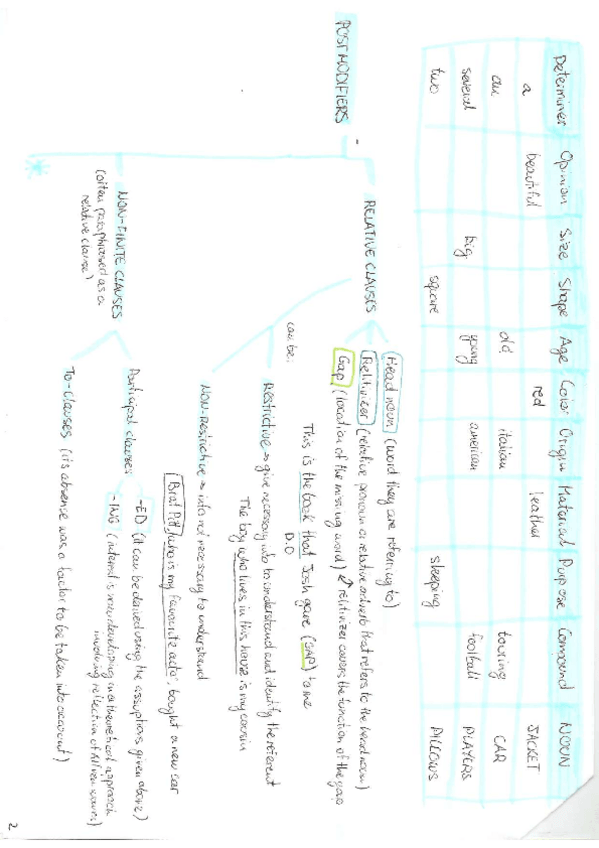 Determiner Opinion Size Shape Age Color Origin Material Purpose Compound NOUN
a beautiful red leather JACKET
an old italian touring CAR
several big young american football PLAYERS
two square sleeping PILLOWS
POSTMODIFIERS
RELATIVE CLAUSES
Head noun (word they are referring to)
Relitivizer (relative pronoun or relative adverb that refers to the head noun)
Gap (location of the missing word) relitivizer covers the function of the gap
This is the book that Josh gave (GAP) to me
D.O
can be:
Restrictive → give necessary info to understand and identify the referent
The boy who lives in this house is my cousin
NON-Restrictive → info not necessary to understand
Brat Pitt, who is my favourite actor, bought a new car
NON-FINITE CLAUSES
(often paraphrased as a
relative clause)
Participal clauses
-ED (It can be derived using the assuptions given above)
-ING (interest is now developing in a theoretical approach
involving reflection of Alfven waves)
To-clauses (its absence was a factor to be taken into account)
2